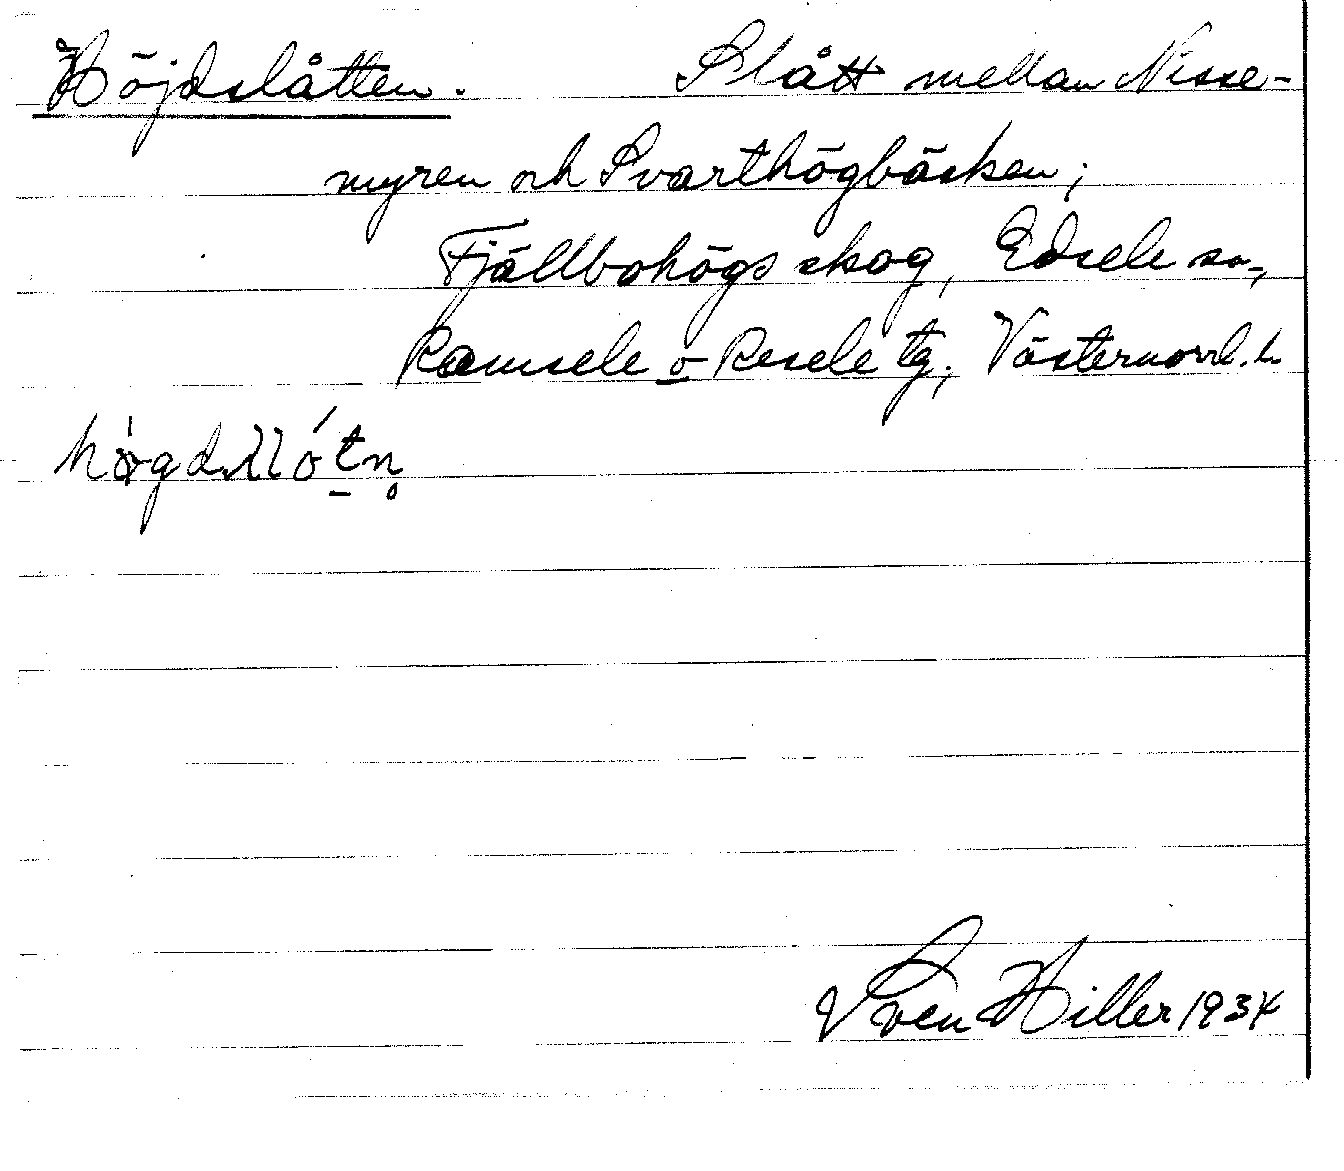 Höjdslåtten. Slått mellan Nisse-
myren och Svarthögbäcken;
Fjällbohögs skog, Edsele sn,
Ramsele o Resele tg, Västernorrl. l.
Sven Hiller 1934